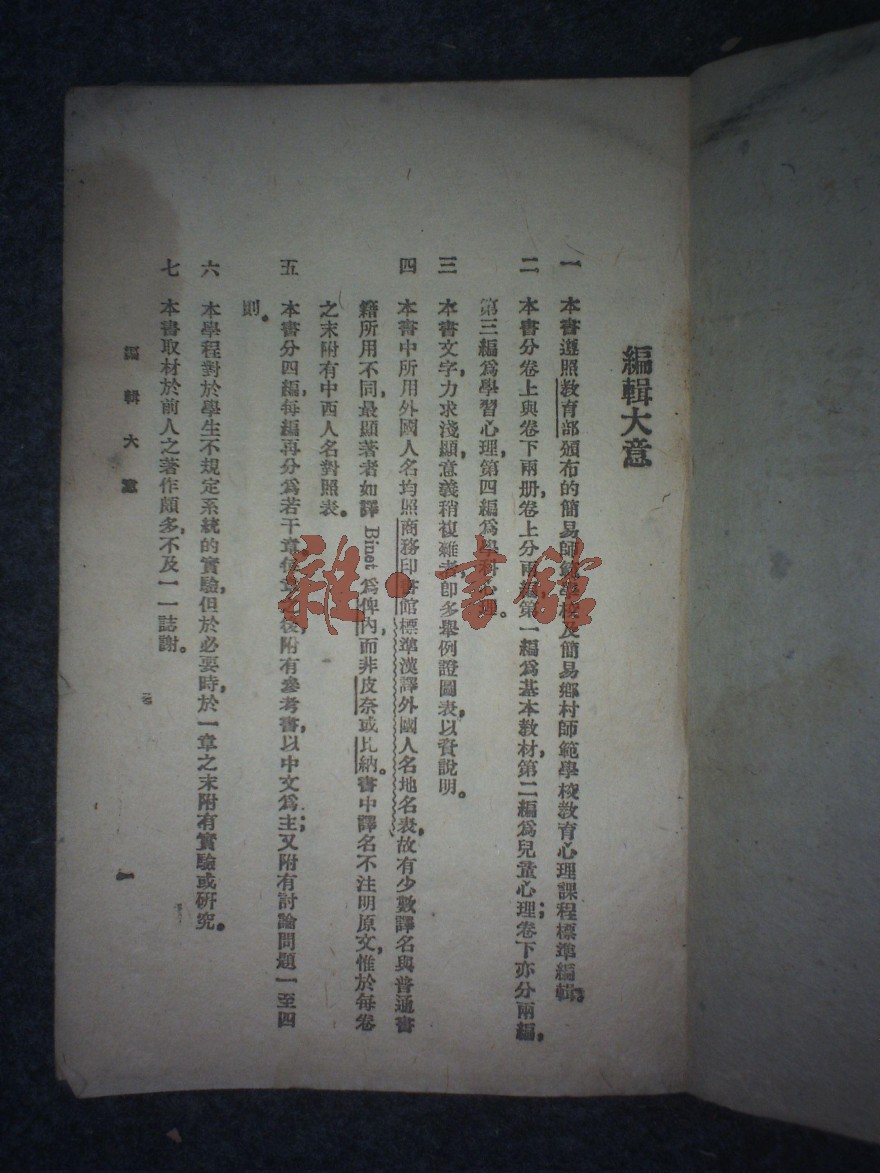 編輯大意
一 本書遵照教育部頒布的簡易師範學校及簡易鄉村師範學校教育心理課程標準編輯。
二 本書分卷上與卷下兩册，卷上分兩編，第一編爲基本教材，第二編爲兒童心理；卷下亦分兩編，
第三編爲學習心理，第四編爲學科心理。
三 本書文字力求淺顯，意義稍複雜者，卽多舉例證圖表，以資說明。
四 本書中所用外國人名均照商務印書館標準漢譯外國人名地名表，故有少數譯名與普通書
籍所用不同，最顯著者如譯 Binet 爲俾內，而非皮奈或比納。書中譯名不注明原文，惟於每卷
之末附有中西人名對照表。
五 本書分四編，每編再分爲若干章，每章之後附有參考書，以中文爲主；又附有討論問題一至四
則。
六 本學程對於學生不規定系統的實驗，但於必要時，於一章之末附有實驗或研究。
七 本書取材於前人之著作頗多，不及一一誌謝。
編輯大意
一
雜·書館